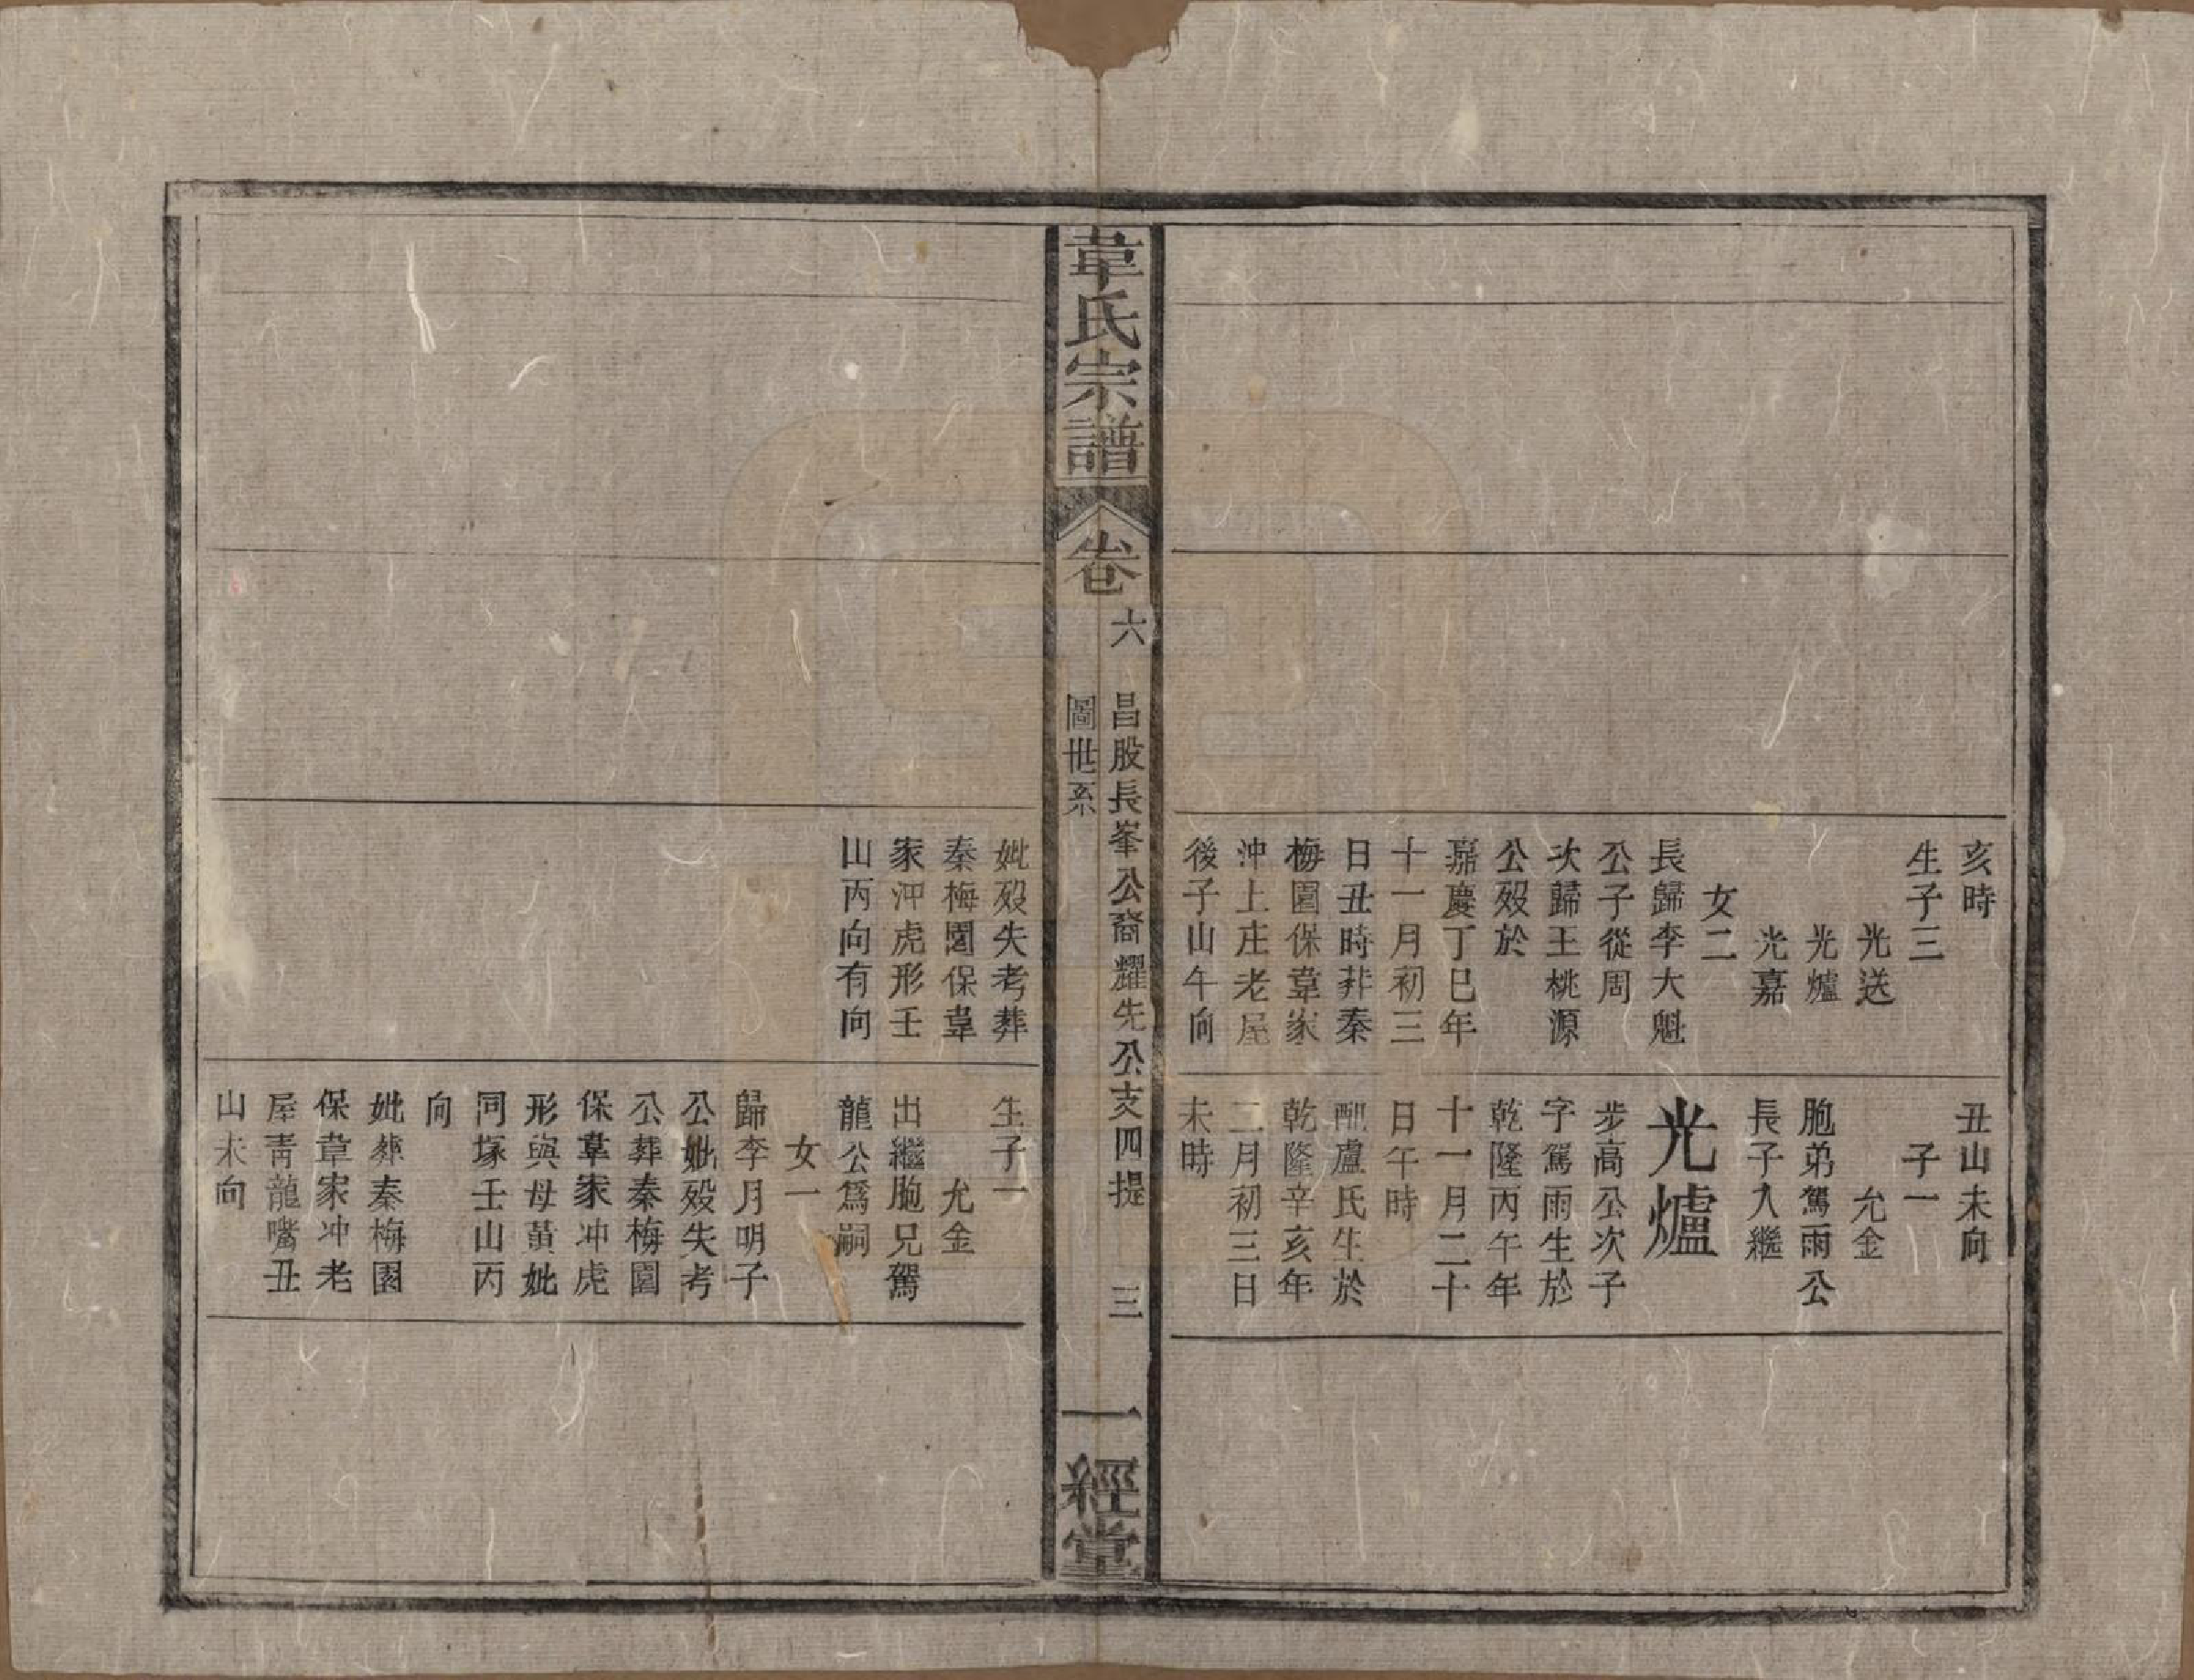 亥時
生子三
光送
光爐
光嘉
女二
長歸李大魁
公子從周
次歸王桃源
公歿於
嘉慶丁巳年
十一月初三
日丑時葬秦
梅園保韋家
沖上庄老屋
後子山午向
丑山未向
子一
允金
胞弟駕雨公
長子入繼
光爐
步高公次子
字駕雨生於
乾隆丙午年
十一月二十
日午時
配盧氏生於
乾隆辛亥年
二月初三日
未時
韋氏宗譜
卷六
昌股長峯公裔耀先公支四提
圖世系
三
一經堂
妣歿失考葬
秦梅園保韋
家沖虎形壬
山丙向有向
生子一
允金
出繼胞兄駕
龍公爲嗣
女一
歸李月明子
公妣歿失考
公葬秦梅園
保韋家冲虎
形與母黃妣
同塚壬山丙
向
妣葬秦梅園
保韋家冲老
屋靑龍嘴丑
山未向